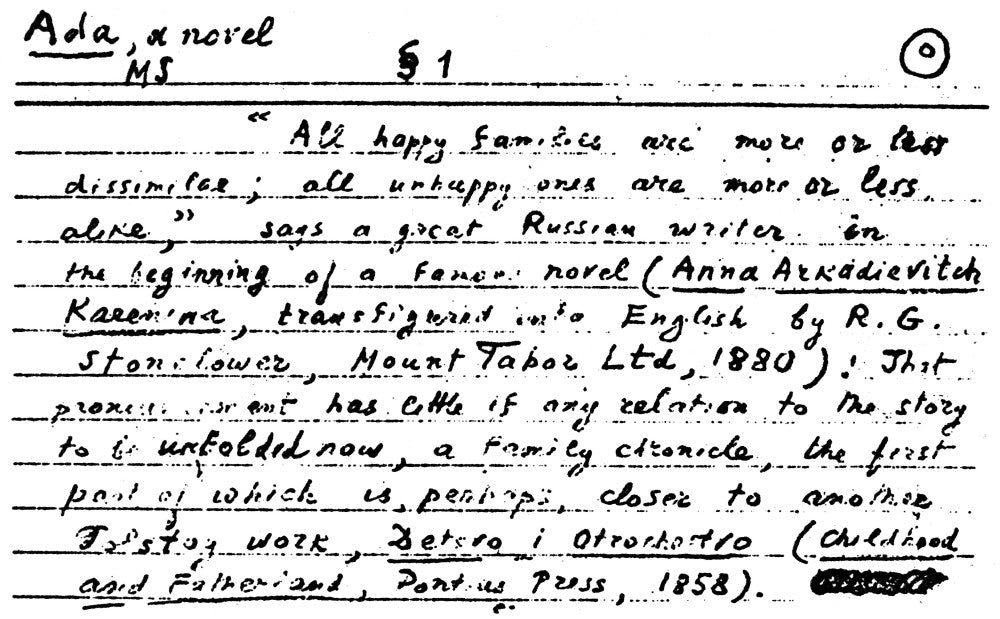 Ada, a novel
MS § 1
"All happy families are more or less
dissimilar; all unhappy ones are more or less
alike," says a great Russian writer in
the beginning of a famous novel (Anna Arkadievitch
Karenina, transfigured into English by R. G.
Stonelower, Mount Tabor Ltd, 1880). That
pronouncement has little if any relation to the story
to be unfolded now, a family chronicle, the first
part of which is, perhaps, closer to another
Tolstoy work, Detstvo i Otrochestvo (Childhood
and Fatherland, Pontius Press, 1858).